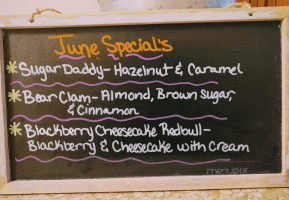 June Special's
* Sugar Daddy- Hazelnut & Caramel
* Bear Clam- Almond, Brown Sugar,
& Cinnamon
* Blackberry Cheesecake Redbull-
Blackberry & Cheesecake with Cream
menupix